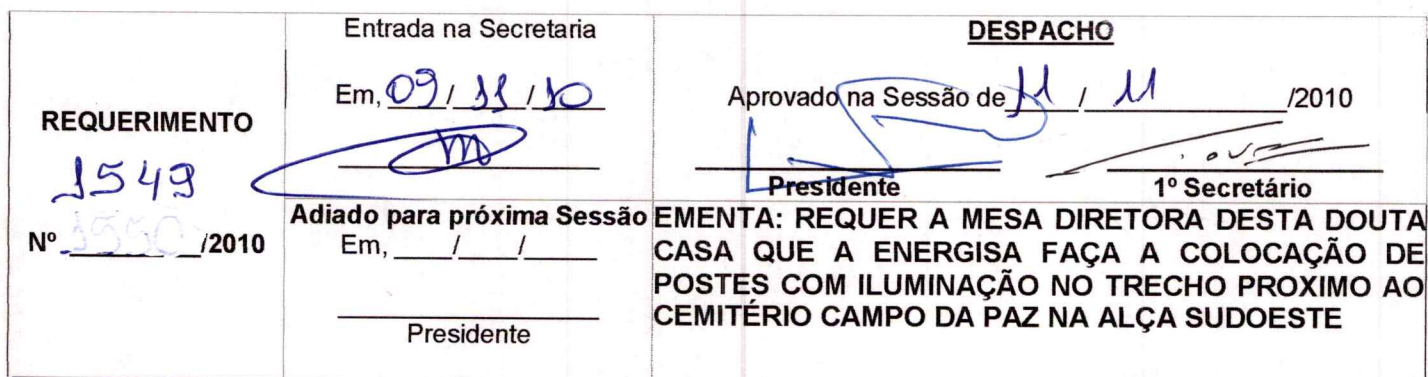 REQUERIMENTO
1549
Nº /2010
Entrada na Secretaria
Em, 09/11/10
Adiado para próxima Sessão
Em, ____/____/____
Presidente
DESPACHO
Aprovado na Sessão de 11 / 11 /2010
Presidente
1º Secretário
EMENTA: REQUER A MESA DIRETORA DESTA DOUTA
CASA QUE A ENERGISA FAÇA A COLOCAÇÃO DE
POSTES COM ILUMINAÇÃO NO TRECHO PROXIMO AO
CEMITÉRIO CAMPO DA PAZ NA ALÇA SUDOESTE